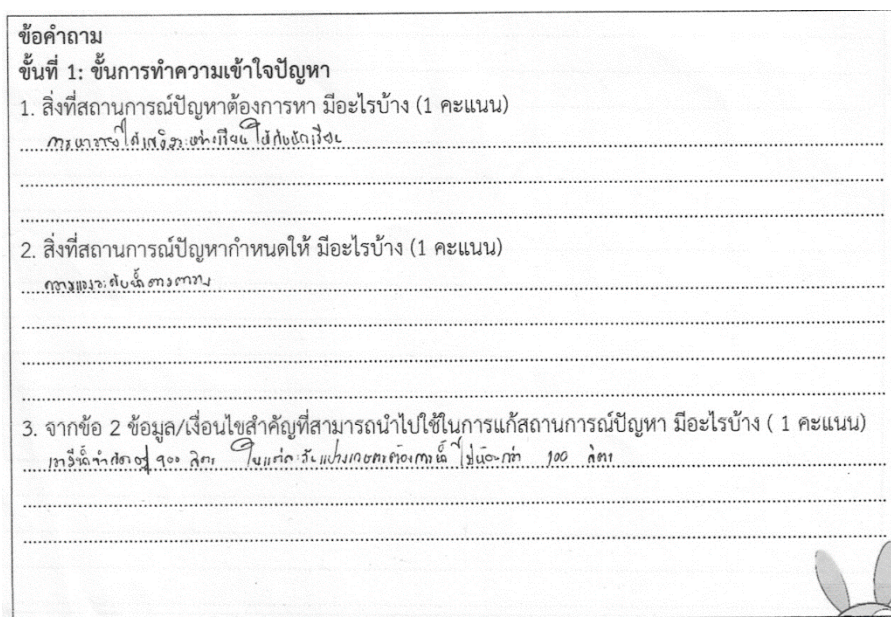 ข้อคำถาม
ขั้นที่ 1: ขั้นการทำความเข้าใจปัญหา
1. สิ่งที่สถานการณ์ปัญหาต้องการหา มีอะไรบ้าง (1 คะแนน)
การหารายได้เสริมระหว่างเรียน ให้กับนักเรียน
2. สิ่งที่สถานการณ์ปัญหากำหนดให้ มีอะไรบ้าง (1 คะแนน)
ตาราง
3. จากข้อ 2 ข้อมูล/เงื่อนไขสำคัญที่สามารถนำไปใช้ในการแก้สถานการณ์ปัญหา มีอะไรบ้าง ( 1 คะแนน)
เรามีน้ำจำกัดอยู่ 900 ลิตร ในแต่ละวันแปลงเกษตรต้องการน้ำไม่น้อยกว่า 100 ลิตร